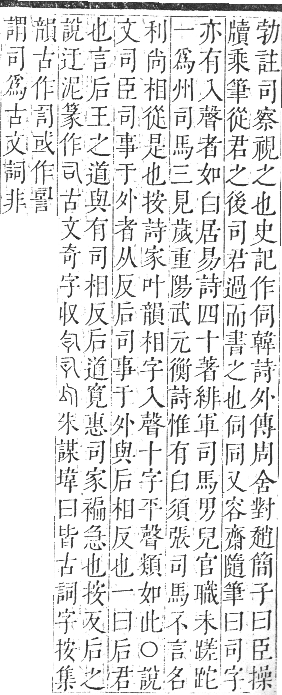 勃註司察視之也史記作伺韓詩外傳周舍對趙簡子曰臣操
牘乘筆從君之後司君過而書之也伺同又容齋隨筆曰司字
亦有入聲者如白居易詩四十著緋軍司馬男兒官職未蹉跎
一爲州司馬三見歲重陽武元衡詩惟有白須張司馬不言名
利尙相從是也按詩家叶韻相字入聲十字平聲類如此○說
文司臣司事于外者从反后司事于外與后相反也一曰后君
也言后王之道與有司相反后道寬惠司家褊急也按反后之
說迂泥篆作司古文奇字収朱謀㙔曰皆古詞字按集
韻古作𤔲或作
謂司爲古文詞非